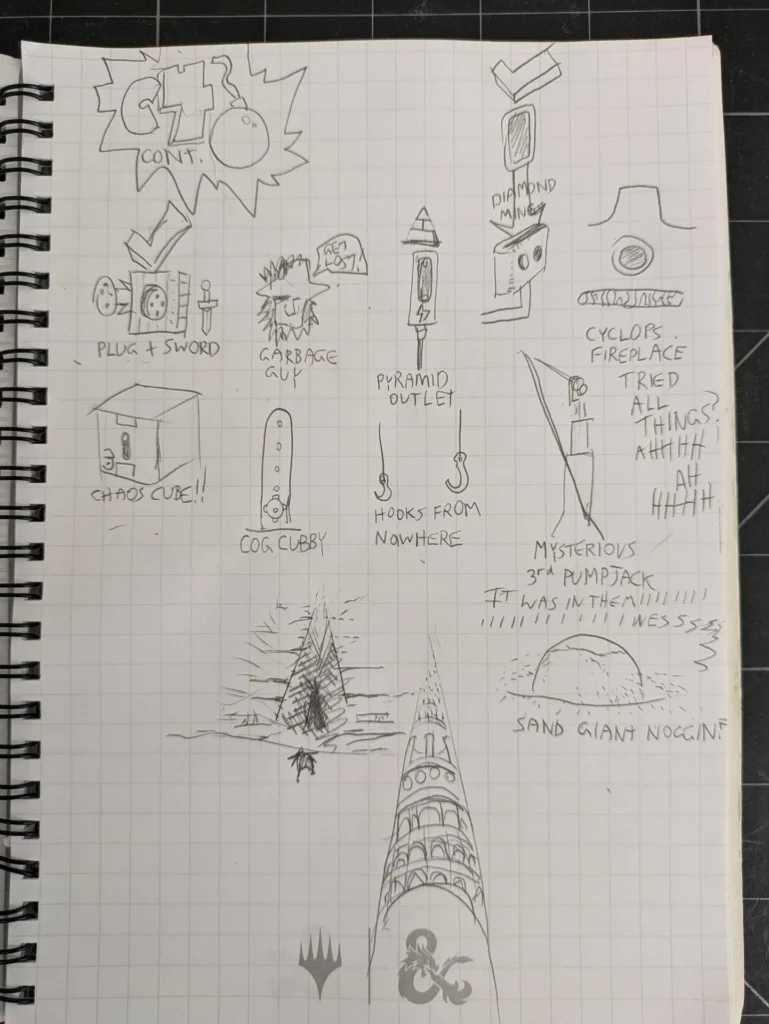 CONT.
DIAMOND
MINE?
GET
LOST!
PLUG + SWORD
GARBAGE
GUY
PYRAMID
OUTLET
CYCLOPS
FIREPLACE
TRIED
ALL
THINGS?
AHHHH
AH
HHHH
CHAOS CUBE!!
COG CUBBY
HOOKS FROM
NOWHERE
MYSTERIOUS
3rd PUMPJACK
IT WAS IN THE
NESSSS
SAND GIANT NOGGIN?